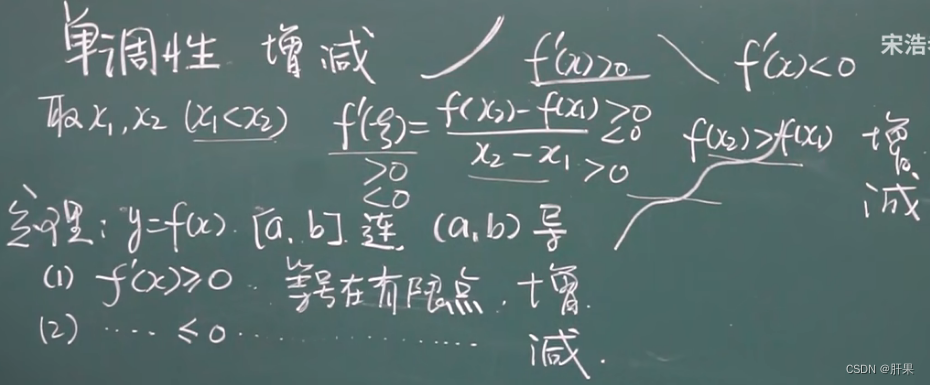 单调性 增 减 f'(x)>0 f'(x)<0 宋浩
取x₁,x₂ (x₁<x₂) f'(ξ)= f(x₂)-f(x₁) >0 <0
x₂-x₁ >0
>0
<0
f(x₂)>f(x₁) 增
减
定理: y=f(x). [a,b]. 连, (a,b) 导
(1) f'(x)≥0 .. 等号在有限点. 增.
(2) ···· ≤0 ················ 减.
CSDN @肝果